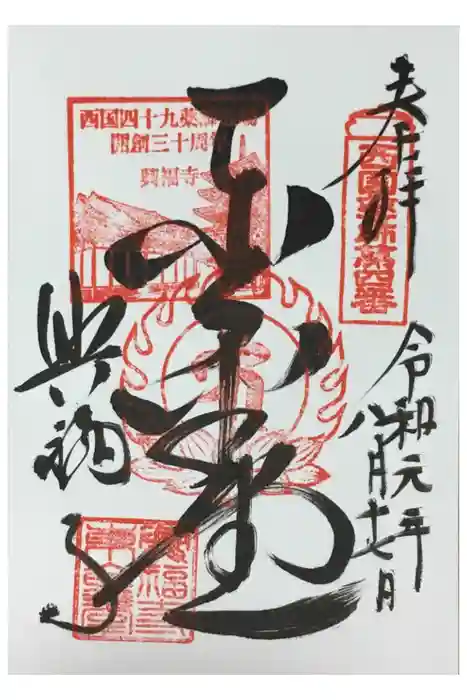 奉拝
西国薬師第四番
令和元年
八月十七日
西国四十九薬師霊場
開創三十周年
興福寺
興福寺